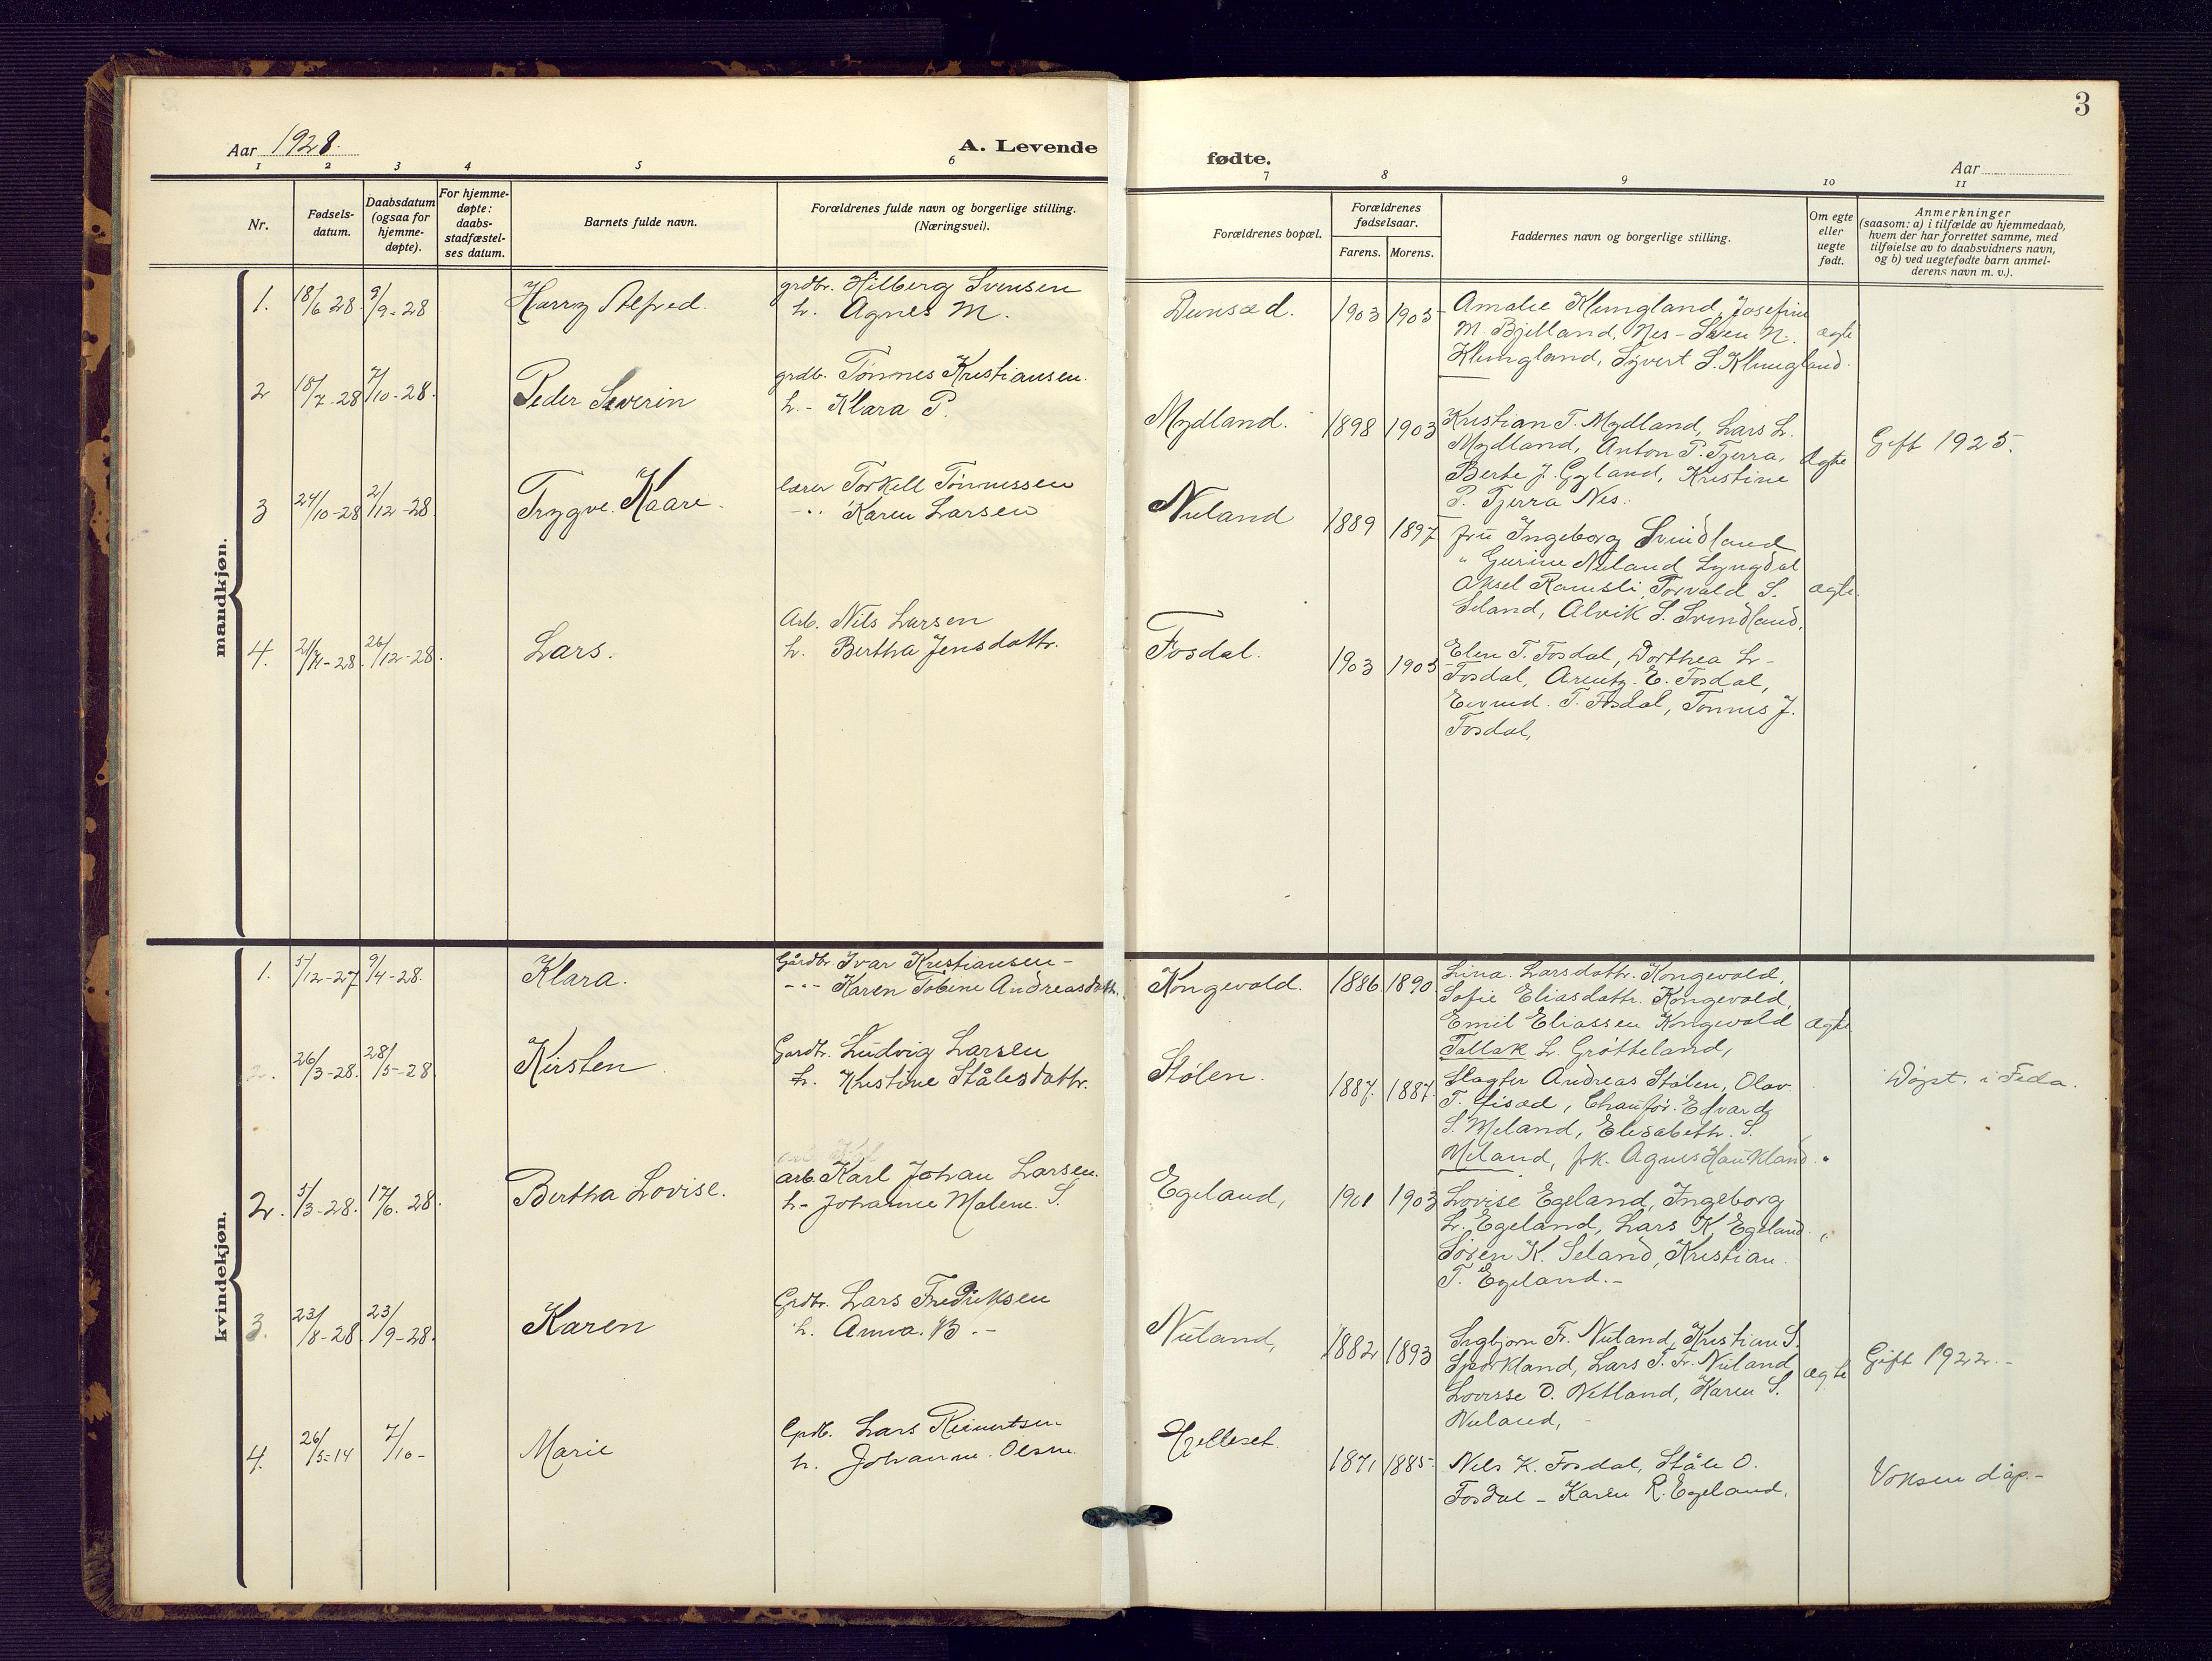 3
Aar 1928.
A. Levende
fødte.
Aar
1 2 3 4 5 6 7 8 9 10 11
Nr.
Fødsels-
datum.
Daabsdatum
(ogsaa for
hjemme-
døpte).
For hjemme-
døpte:
daabs-
stadfæstel-
ses datum.
Barnets fulde navn.
Forældrenes fulde navn og borgerlige stilling.
(Næringsvei).
Forældrenes bopæl.
Forældrenes
fødselsaar.
Farens. Morens.
Faddernes navn og borgerlige stilling.
Om egte
eller
uegte
født.
Anmerkninger
(saasom: a) i tilfælde av hjemmedaab,
hvem der har forrettet samme, med
tilføielse av to daabsvidners navn,
og b) ved uegtefødte barn anmel-
derens navn m. v.).
mandkjøn.
1. 18/6 28. 9/9-28 Harry Alfred.
grdbr. Hilberg Svensen
h. Agnes M.
Dunsæd. 1903 1905
Amalie Klungland, Josefine
M. Bjelland, Nes - Sven N.
Klungland, Syvert S. Klungland.
ægte
2 18/7-28 7/10-28. Peder Severin
grdb. Tønnes Kristiansen.
h. - Klara P.
Mydland. 1898 1903
Kristian T. Mydland, Lars L.
Mydland, Anton P. Tjerra,
Berte J. Gyland, Kristine
P. Tjerra Nes.
Ægte
Gift 1925.
3 24/10-28 2/12-28 Trygve Kaare.
lærer Torkell Tønnessen
-"- Karen Larsen
Nuland 1889 1897
fru Ingeborg Svindland
" Gurine Nuland Lyngdal
Aksel Ramsli, Torvald S.
Seland, Alvik S. Svindland.
ægte.
4. 21/11-28. 26/12-28. Lars.
Arb. Nils Larsen
h. Bertha Jensdattr.
Fosdal. 1903 1905
Elen T. Fosdal, Dorthea L-
Fosdal, Arentz. E. Fosdal,
Eivind. T. Fosdal, Tønnes J.
Fosdal,
kvindekjøn.
1. 5/12-27 9/4-28. Klara.
Gårdbr. Ivar Kristiansen -
-"- Karen Tobine Andreasdatt.
Kongevold. 1886 1890
Lina. Larsdattr. Kongevold,
Sofie Eliasdattr. Kongevold,
Emil Eliassen Kongevold
Tallak L. Grøtteland,
Ægte
2. 26/3-28. 28/5-28 Kirsten
Gardbr. Ludvig Larsen
h. Kristine Stålesdattr.
Stølen. 1887. 1887.
Slagter Andreas Stølen, Olav
T. Lisæd, Chaufør. Edvard
S. Meland, Elisabeth. S.
Meland, frk. Agnes Haukland.
"
Døpt. i Feda.
2. 5/3-28. 17/6. 28. Bertha Lovise.
arb. Karl Johan Larsen.
h- Johanne Malene. S
Egeland, 1901 1903
Lovise Egeland, Ingeborg
L. Egeland, Lars K. Egeland.
Søren K. Seland, Kristian.
T. Egeland.-
"
3. 23/8-28. 23/9-28. Karen
Grdbr. Lars Fredriksen
h. Anna. B. -
Nuland, 1882 1893
Sigbjørn Fr. Nuland, Kristian S.
Sporkland, Lars T. Fr. Nuland
Lovisse O. Netland, Karen S.
Nuland, -
ægte
Gift 1922.-
4. 26/5-14 7/10- Marie
Grdb. Lars Reinertsen
h. Johanne. Olsen.
Hjelleset. 1871 1885.
Nils K. Fosdal, Ståle O.
Fosdal - Karen R. Egeland.
Voksen dåp.-